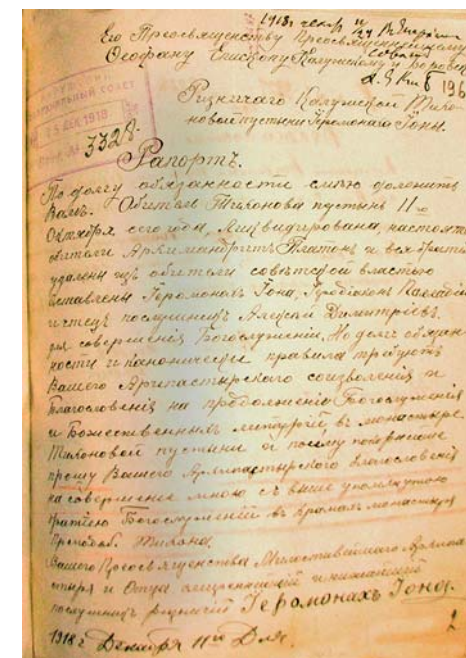 1918 г. декбр
Его Преосвященству Преосвященнейшему
Феофану Епископу Калужскому и Боровск
196
Ризничаго Калужской Тихо-
новой пустыни Іеромонаха Іоны.
ЕПАРХІАЛЬНЫЙ СОВЕТ
25 ДЕК 1918
3328.
Рапортъ.
По долгу обязанности смѣю доложить
Вамъ. Обитель Тихонова пустынь 11го
Октября сего года, Ликвидирована, настоят
обители Архимандритъ Платонъ и вся братія
удалены изъ обители совѣтской властью
оставлены Іеромонахъ Іона, Іеродіаконъ Палладій
и чтецъ послушникъ Алексей Димитріевъ.
для совершенія Богослуженій. Но долгъ обязан
ности и каноническія правила требуютъ
Вашего Архипастырского соизволенія и
Благословенія на продолженіе Богослуженія
и Божественныхъ литургій въ монастыре
Тихоновой пустыни и посему покорнейше
прошу Вашего Архипастырского Благословенія
на совершеніе мною съ выше упомянутою
братіею Богослуженій въ храмахъ монастыря
Преподоб. Тихона.
Вашего Преосвященства Милостивейшаго Архипа
стыря и Отца нижайшій
послушникъ ризничій Іеромонахъ Іона.
1918 г Декабря 11го Дня.
2